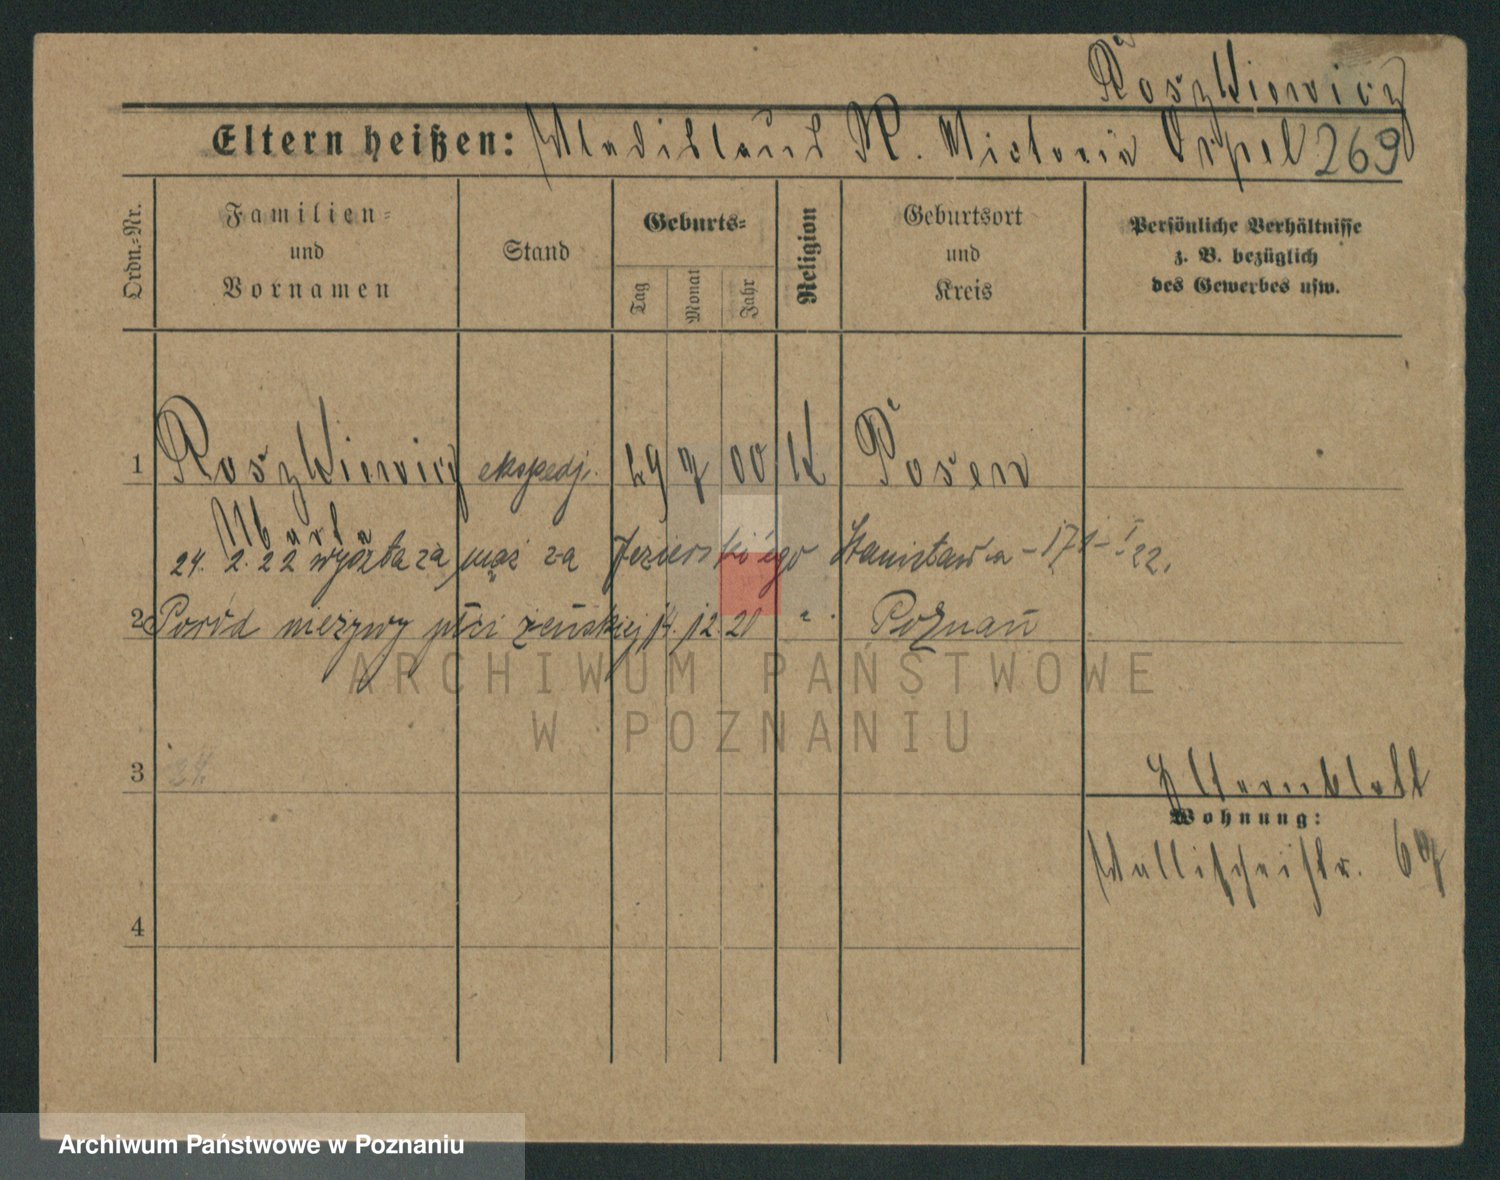 Roszkiewicz
Eltern heißen: Wladislaus R. Victoria Orpel 269
Ordn.-Nr.
Familien- und Vornamen
Stand
Geburts-
Tag
Monat
Jahr
Religion
Geburtsort und Kreis
Persönliche Verhältnisse
z. B. bezüglich
des Gewerbes usw.
1 Roszkiewicz ekspedj. 29 7 00 K Posen
Marta
24. 2. 22 wyszła za mąż za Jezierskiego Stanisława - 171 - I 22.
2 Poród nieżywy płci żeńskiej 14. 12. 21 " Poznań
ARCHIWUM PAŃSTWOWE
W POZNANIU
3 24.
Elternblatt
Wohnung:
Wallischeistr. 67
4
Archiwum Państwowe w Poznaniu